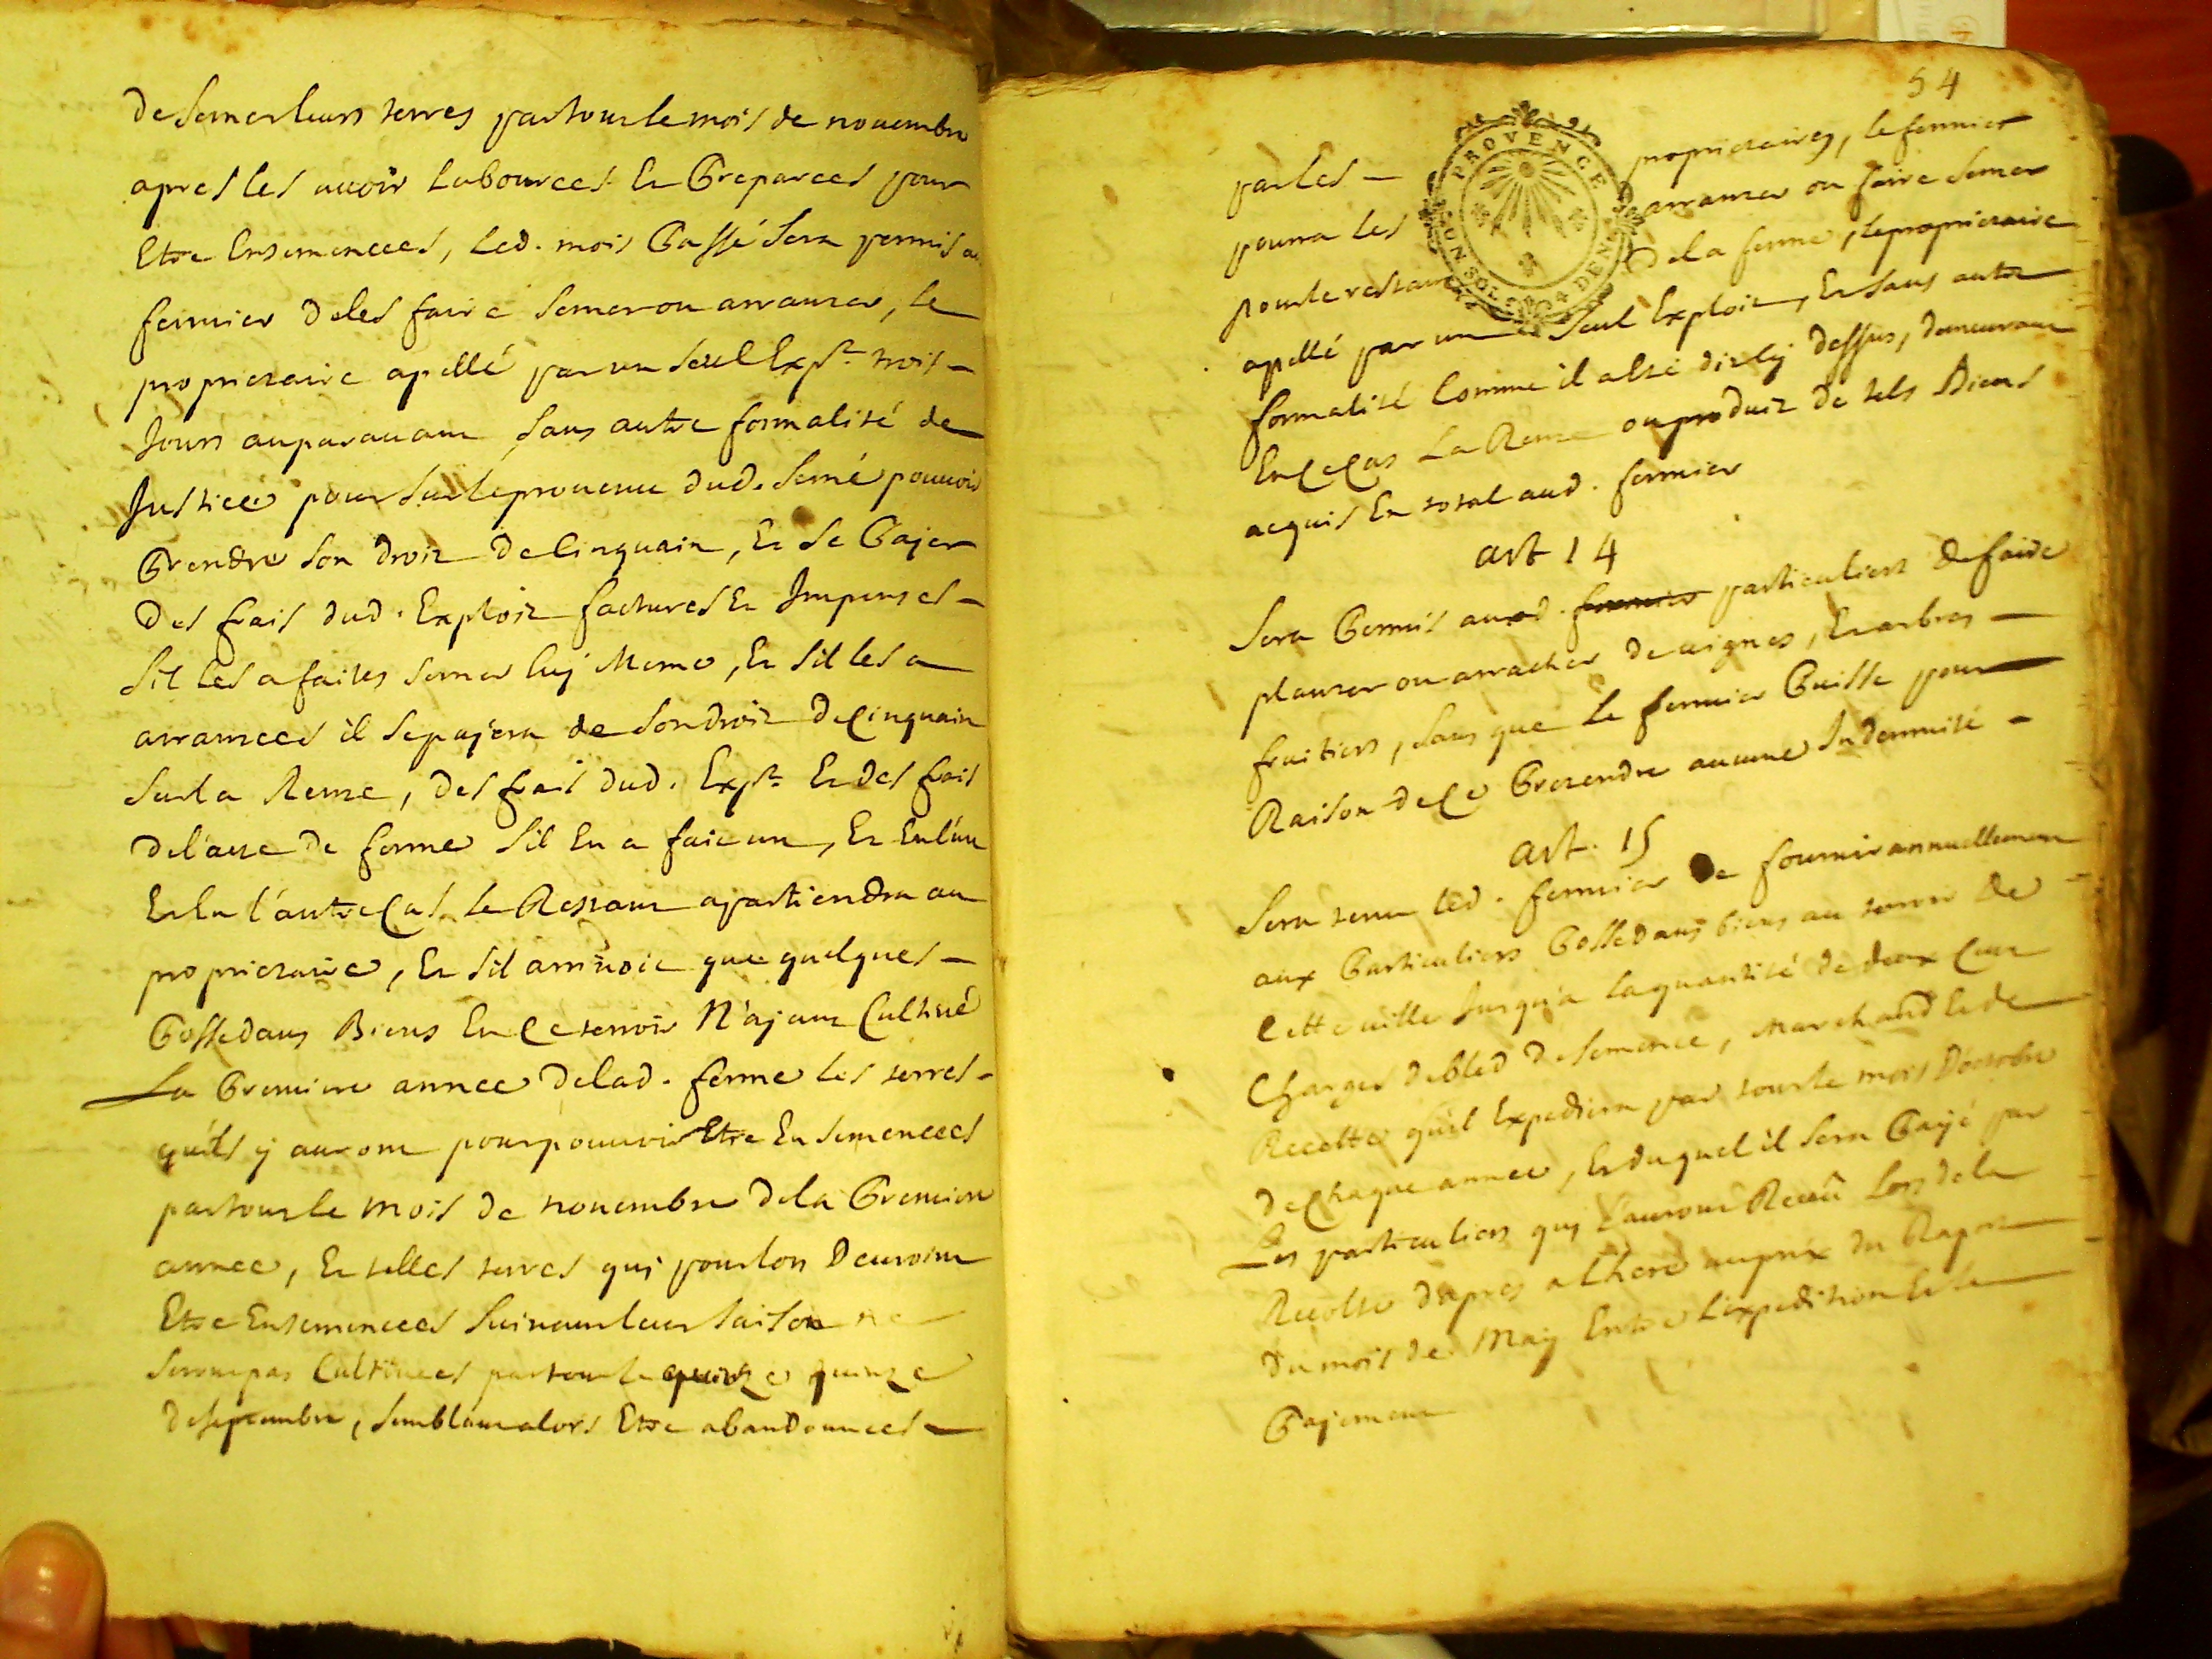 de semer leurs terres par tout le mois de novembre
apres les avoir labourées et preparées pour
etre ensemencées, led. mois passé sera permis au
fermier de les faire semer ou arranter, le
proprietaire apellé par un seul exp.t trois
jours auparavant sans autre formalité de
justice pour sur le provenu dud. semé pouvoir
prendre son droit de cinquain, et se payer
des frais dud. exploit factures et impenses
sil les a faites semer luy meme, et sil les a
arrantées il se payera de son droit de cinquain
sur la rente, des frais dud. exp.t et des frais
de l'acte de ferme sil en a fait un, et en l'un
et en l'autre cas le restant apartiendra au
proprietaire, et sil arrivoit que quelques
possedans biens en ce terroir n'ayent cultivé
la premiere année de lad. ferme les terres
quils y auront pour pouvoir etre ensemencées
par tout le mois de novembre de la premiere
année, et telles terres qui pour lors devroient
etre ensemencées suivant leur saison ne
seront pas cultivées par tout le quinze
de septembre, semblant alors etre abandonnées
54
PROVENCE
par les proprietaires, le fermier
pourra les arranter ou faire semer
pour le restant de la ferme, le proprietaire
apellé par un seul exploit, et sans autre
formalité comme il a été dit cy dessus, demeurant
en ce cas la rente ou produit de tels biens
acquis en total aud. fermier
art 14
sera permis auxd. fermier particuliers de faire
planter ou arracher de vignes, et arbres
fruitiers, sans que le fermier puisse pour
raison de ce pretendre aucune indemnité
art. 15
sera tenu led. fermier de fournir annuellement
aux particuliers possedans biens au terroir de
cette ville jusqu'a la quantité de deux cent
charges de bled de semence, marchand et de
recette quil expediera par tout le mois d'octobre
de chaque année, et duquel il sera payé par
les particuliers qui l'auront reçeû lors de la
recolte d'apres a l'here au prix du raport
du mois de may entre l'expedition et le
payement